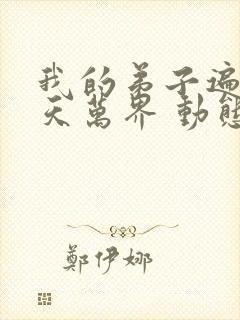 我的弟子遍
天萬界 動態
鄭伊娜